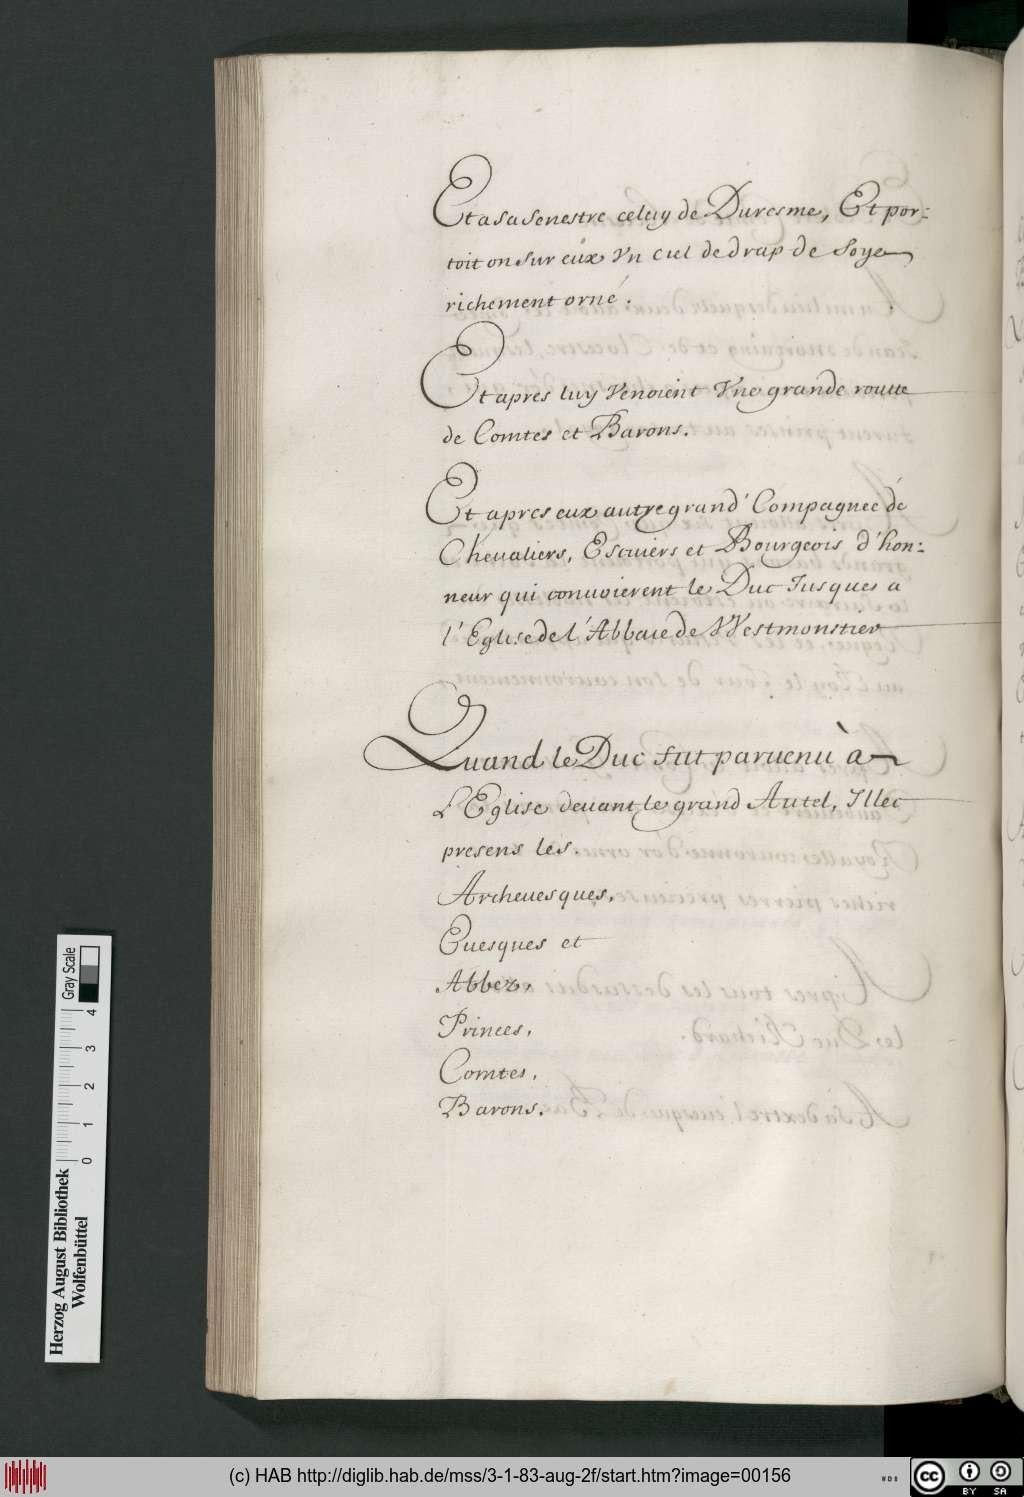 Et a sa senestre celuy de Duresme, Et por=
toit on sur eux Vn ciel de drap de Soye
richement orné.
Et apres luy Venoient Vne grande routte
de Comtes et Barons.
Et apres eux autre grand' Compagnee de
Chevaliers, Escuiers et Bourgeois d'hon=
neur qui convoierent le Duc Jusques a
l'Eglise de l'Abbaie de Westmonstier
Quand le Duc fut parvenu à
L'Eglise devant le grand Autel, Illec
presens les.
Archevesques,
Evesques et
Abbez,
Princes,
Comtes,
Barons.
Gray Scale
0 1 2 3 4
Herzog August Bibliothek
Wolfenbüttel
(c) HAB http://diglib.hab.de/mss/3-1-83-aug-2f/start.htm?image=00156
cc BY SA